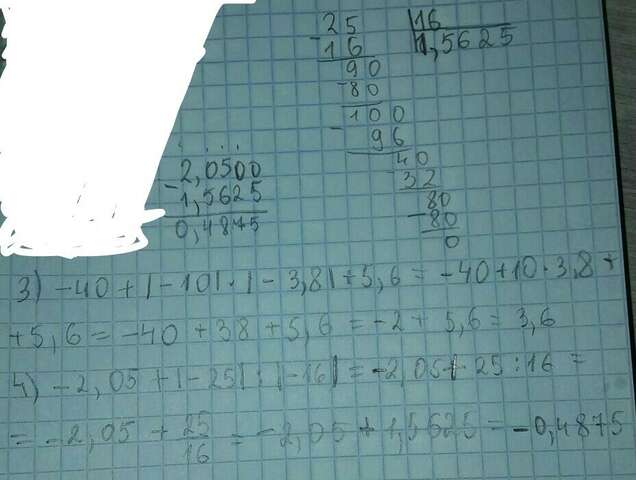 25 |16
-16 1,5625
90
-80
100
- 96
40
32
80
-80
0
2,0500
-1,5625
0,4875
3) -40+|-10|·|-3,8|+5,6=-40+10·3,8+
+5,6=-40+38+5,6=-2+5,6=3,6
4) -2,05+|-25|:|-16|=-2,05+25:16=
=-2,05+25/16=-2,05+1,5625=-0,4875